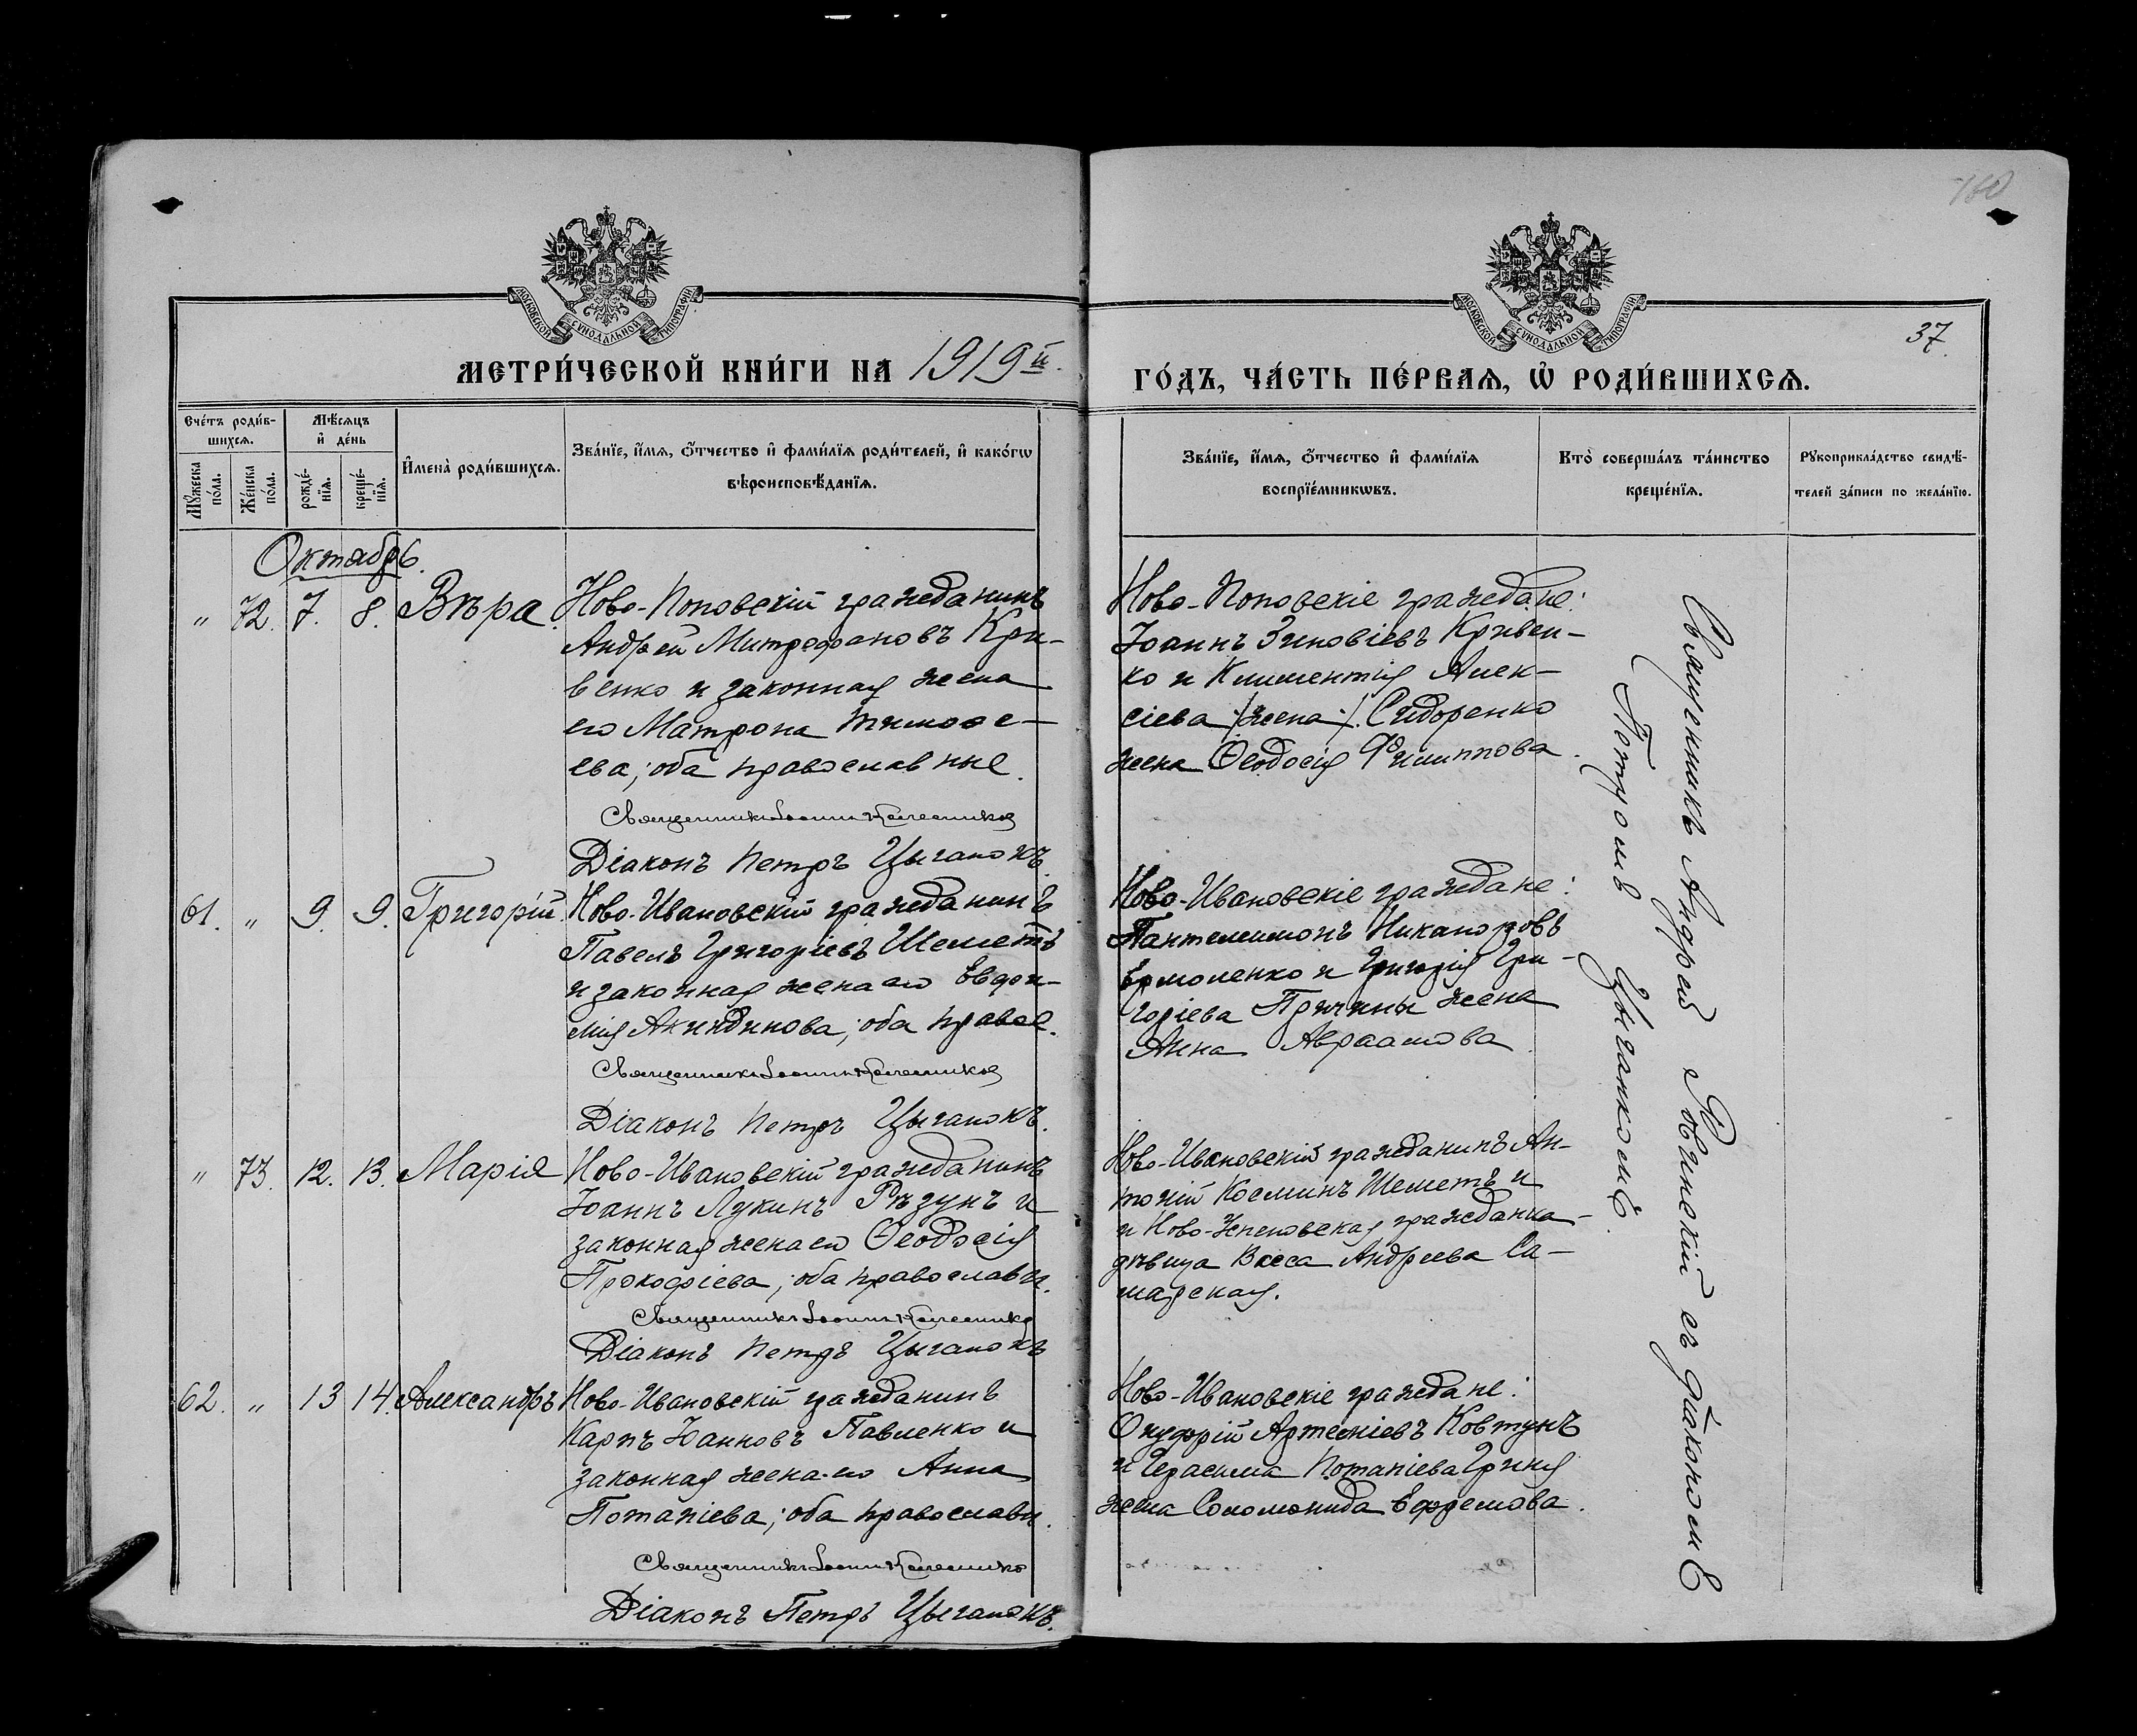 160
37.
МОСКОВСКОЙ СѴНОДАЛЬНОЙ ТИПОГРАФІИ
МОСКОВСКОЙ СѴНОДАЛЬНОЙ ТИПОГРАФІИ
МЕТРИ́ЧЕСКОЙ КНИ́ГИ НА 1919й.
ГО́ДЪ, ЧА́СТЬ ПЕ́РВАѦ, Ѡ҆ РОДИ́ВШИХСѦ.
Сче́тъ роди́в-
шихсѧ.
Мꙋ́жеска по́ла.
Же́нска по́ла.
Мѣ́сѧцъ
и҆ де́нь
рожде́-
нїѧ.
креще́-
нїѧ.
И҆мена̀ роди́вшихсѧ.
Зва́нїе, и҆́мѧ, ѻ҆́тчество и҆ фами́лїѧ роди́телей, и҆ како́гѡ
вѣроисповѣ́данїѧ.
Зва́нїе, и҆́мѧ, ѻ҆́тчество и҆ фами́лїѧ
воспрїе́мникѡвъ.
Кто̀ соверша́лъ та́инство
креще́нїѧ.
Рꙋкоприкла́дство свидѣ́-
телей за́писи по жела́нїю.
Октябрь.
" 72. 7. 8. Вѣра.
Ново-Поповскій гражданинъ
Андрей Митрофановъ Кри-
венко и законная жена
его Матрона Тимоѳе-
ева; оба православные.
Священникъ Іоаннъ
Діаконъ Петръ Цыганокъ.
Ново-Поповскіе граждане:
Іоаннъ Зиновіевъ Кривен-
ко и Климентія Алек-
сіева /:жена:/ Сидоренко
жена Ѳеодосія Филиппова.
61. " 9. 9. Григорій.
Ново-Ивановскій гражданинъ
Павелъ Григоріевъ Шеметъ
и законная жена его Евдоки-
мія Акиндинова; оба правос.
Священникъ Іоаннъ
Діаконъ Петръ Цыганокъ.
Ново-Ивановскіе граждане:
Пантелеимонъ Никаноровъ
Ермоленко и Григорія Гри-
горіева Причины жена
Анна Авраамова.
" 73. 12. 13. Марія
Ново-Ивановскій гражданинъ
Іоаннъ Лукинъ Рѣзунъ и
законная жена его Ѳеодосія
Прокофіева; оба православн.
Священникъ Іоаннъ
Діаконъ Петръ Цыганокъ
Ново-Ивановскій гражданинъ Ан-
тоній Косминъ Шеметъ и
и Ново-Успеновская гражданка-
дѣвица Васса Андреева Са-
марская.
62. " 13 14. Александръ
Ново-Ивановскій гражданинъ
Карпъ Іоанновъ Павленко и
законная жена его Анна
Потапіева; оба православн.
Священникъ Іоаннъ
Діаконъ Петръ Цыганокъ.
Ново-Ивановскіе граждане:
Онуфрій Артеміевъ Ковтунъ
и Герасима Потапіева Гриня
жена Соломонида Ефремова.
Священникъ Андрей Ровинскій съ діакономъ
Петромъ Цыганкомъ.